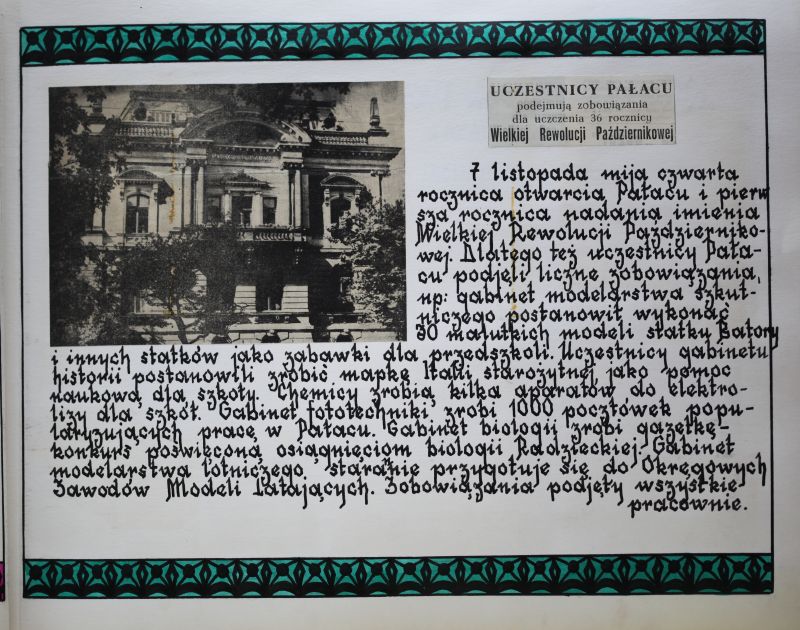 UCZESTNICY PAŁACU
podejmują zobowiązania
dla uczczenia 36 rocznicy
Wielkiej Rewolucji Październikowej
7 listopada mija czwarta
rocznica otwarcia Pałacu i pierw
sza rocznica nadania imienia
Wielkiej Rewolucji Październiko-
wej. Dlatego też uczestnicy Pała-
cu podjęli liczne zobowiązania,
np: gabinet modelarstwa szkut-
niczego postanowił wykonać
30 malutkich modeli statku Batory
i innych statków jako zabawki dla przedszkoli. Uczestnicy gabinetu
historii postanowili zrobić mapkę Itali starożytnej jako pomoc
naukową dla szkoły. Chemicy zrobią kilka aparatów do elektro-
lizy dla szkół. Gabinet fototechniki zrobi 1000 pocztówek popu-
laryzujących pracę w Pałacu. Gabinet biologii zrobi gazetkę-
konkurs poświęconą osiągnięciom biologii Radzieckiej. Gabinet
modelarstwa lotniczego starannie przygotuje się do Okręgowych
Zawodów Modeli Latających. Zobowiązania podjęły wszystkie
pracownie.